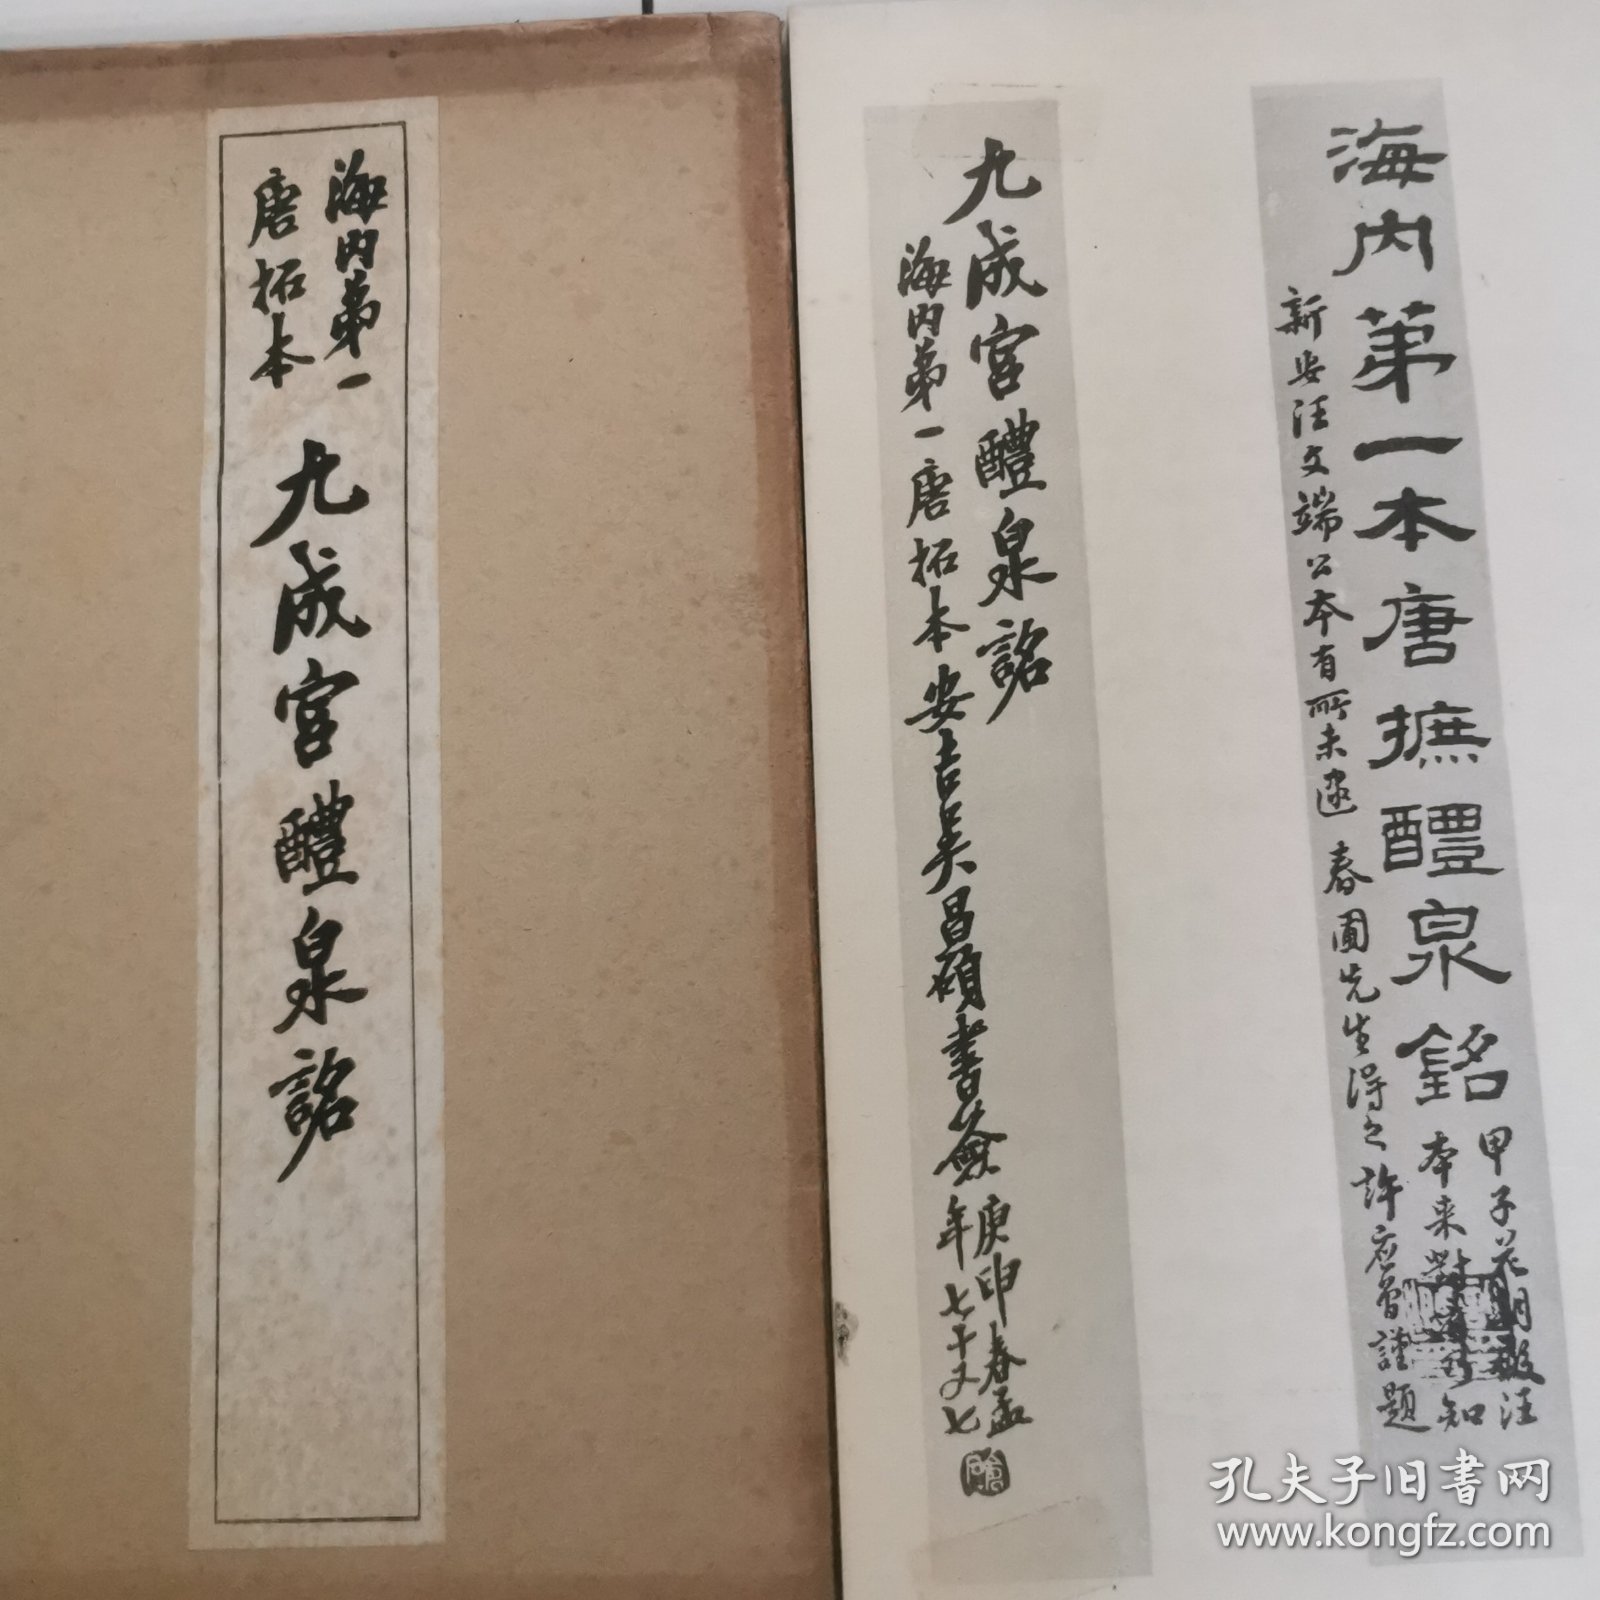 海内第一
唐拓本
九成宫醴泉銘
九成宫醴泉銘
海内第一唐拓本安吉吳昌碩書簽
庚申春孟
年七十又七
海内第一本唐摭醴泉銘
甲子花朝
汪
本来對
知
新安汪文端公本有所未逮 春圃先生得之 許應
謹題
孔夫子旧书网
www.kongfz.com